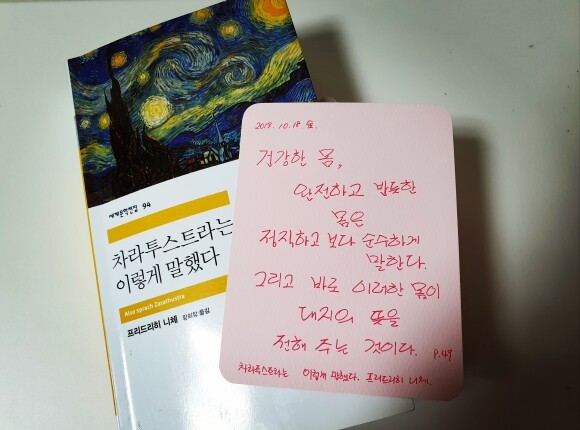 세계문학전집 94
차라투스트라는
이렇게 말했다
Also sprach Zarathustra
프리드리히 니체 장희창 옮김
2019.10.18 금.
건강한 몸,
완전하고 반듯한
몸은
정직하고 보다 순수하게
말한다.
그리고 바로 이러한 몸이
대지의 뜻을
전해 주는 것이다. P.49
차라투스트라는 이렇게 말했다. 프리드리히 니체.